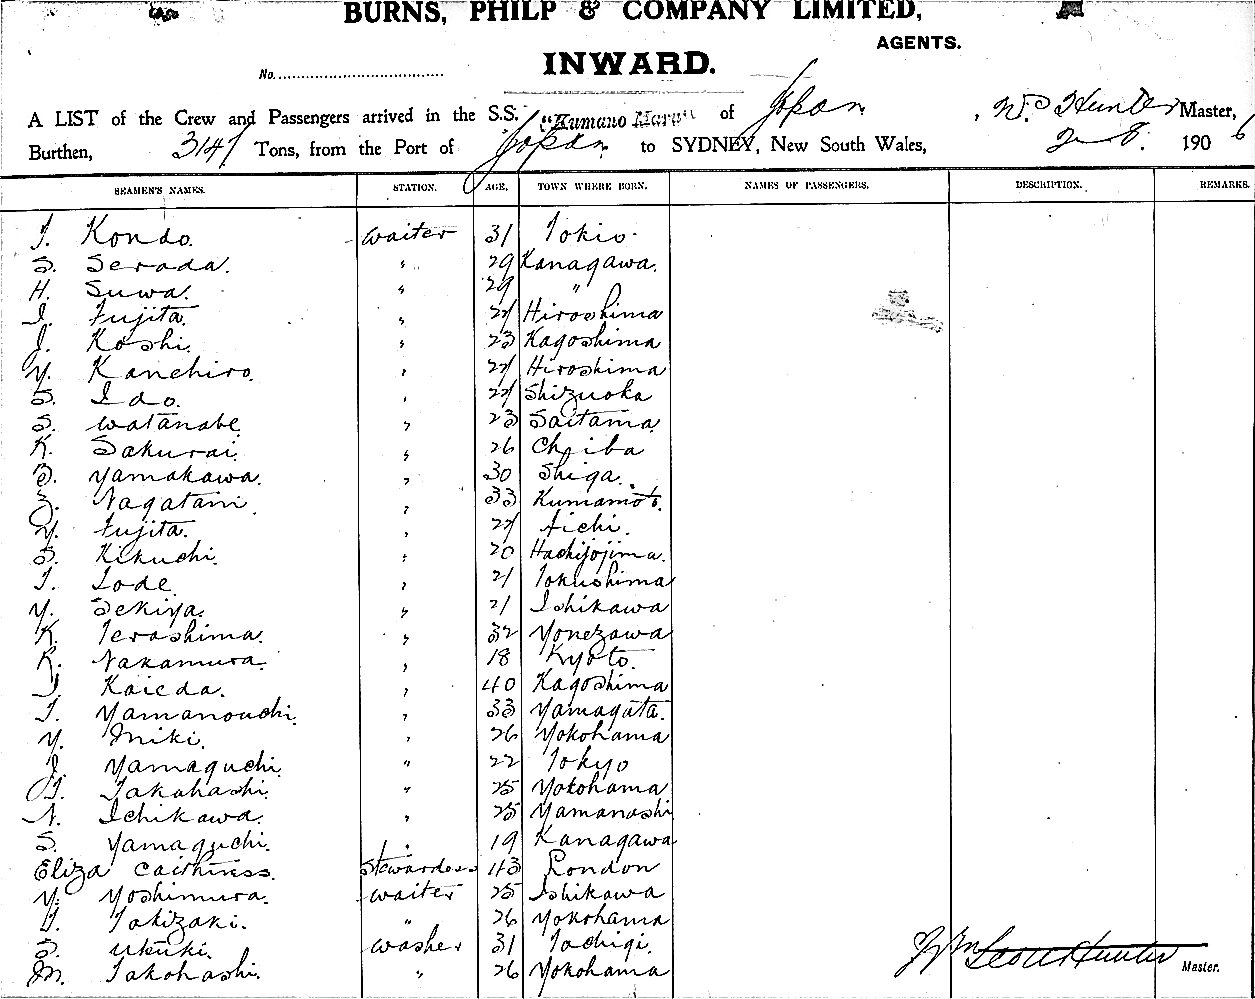 BURNS, PHILP & COMPANY LIMITED,
AGENTS.
No. INWARD.
A LIST of the Crew and Passengers arrived in the S.S. "Kumano Maru" of Japan, W. Hunter Master,
Burthen, 3147 Tons, from the Port of Japan to SYDNEY, New South Wales, 2 8. 1906
SEAMEN'S NAMES. STATION. AGE. TOWN WHERE BORN. NAMES OF PASSENGERS. DESCRIPTION. REMARKS.
T. Kondo. waiter 31 Tokio.
S. Serada. " 29 Kanagawa.
H. Suwa. " 29 "
I. Fujita. " 27 Hiroshima
J. Koshi. " 23 Kagoshima
Y. Kanehiro. " 27 Hiroshima
S. Ido. " 27 Shizuoka
S. Watanabe. " 23 Saitama.
K. Sakurai. " 26 Chiba
S. Yamakawa. " 30 Shiga.
Z. Nagatani. " 33 Kumamoto.
Y. Fujita. " 27 Aichi.
S. Kikuchi. " 20 Hachijojima.
T. Tode. " 21 Tokushima
Y. Sekiya. " 21 Ishikawa
K. Terashima. " 32 Yonezawa
K. Nakamura. " 18 Kyoto.
J. Kaieda. " 40 Kagoshima
T. Yamanouchi. " 33 Yamagata.
Y. Miki. " 26 Yokohama
J. Yamaguchi. " 22 Tokyo
T. Takahashi. " 25 Yokohama
N. Ichikawa. " 25 Yamanashi
S. Yamaguchi. " 19 Kanagawa
Eliza Caithness. Stewardess 43 London
Y. Yoshimura. waiter 25 Ishikawa
T. Takizaki. " 26 Yokohama
S. Ukuki. washer 31 Tochigi.
M. Takahashi. " 26 Yokohama
Wm Scott Hunter Master.